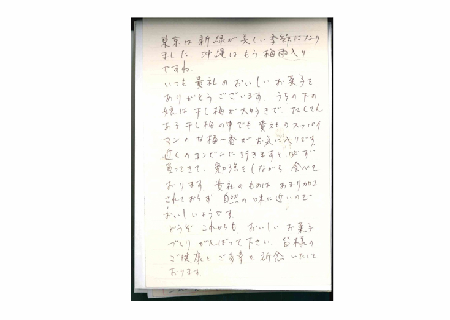 東京は新緑が美しい季節になり
ました 沖縄はもう梅雨入り
ですね
いつも貴社のおいしいお菓子を
ありがとうございます うちの下の
娘は干し梅が大好きで たくさん
ある干し梅の中でも貴社のスッパイ
マンの梅一番がお気に入りです
近くのコンビニに行きますと必ず
買ってきて、勉強をしながら食べて
おります 貴社のものはあまり加工
されておらず 自然の味に近いので
おいしいようです
どうぞこれからも おいしいお菓子
づくり がんばって下さい 皆様の
ご健康とご多幸をお祈りいたして
おります